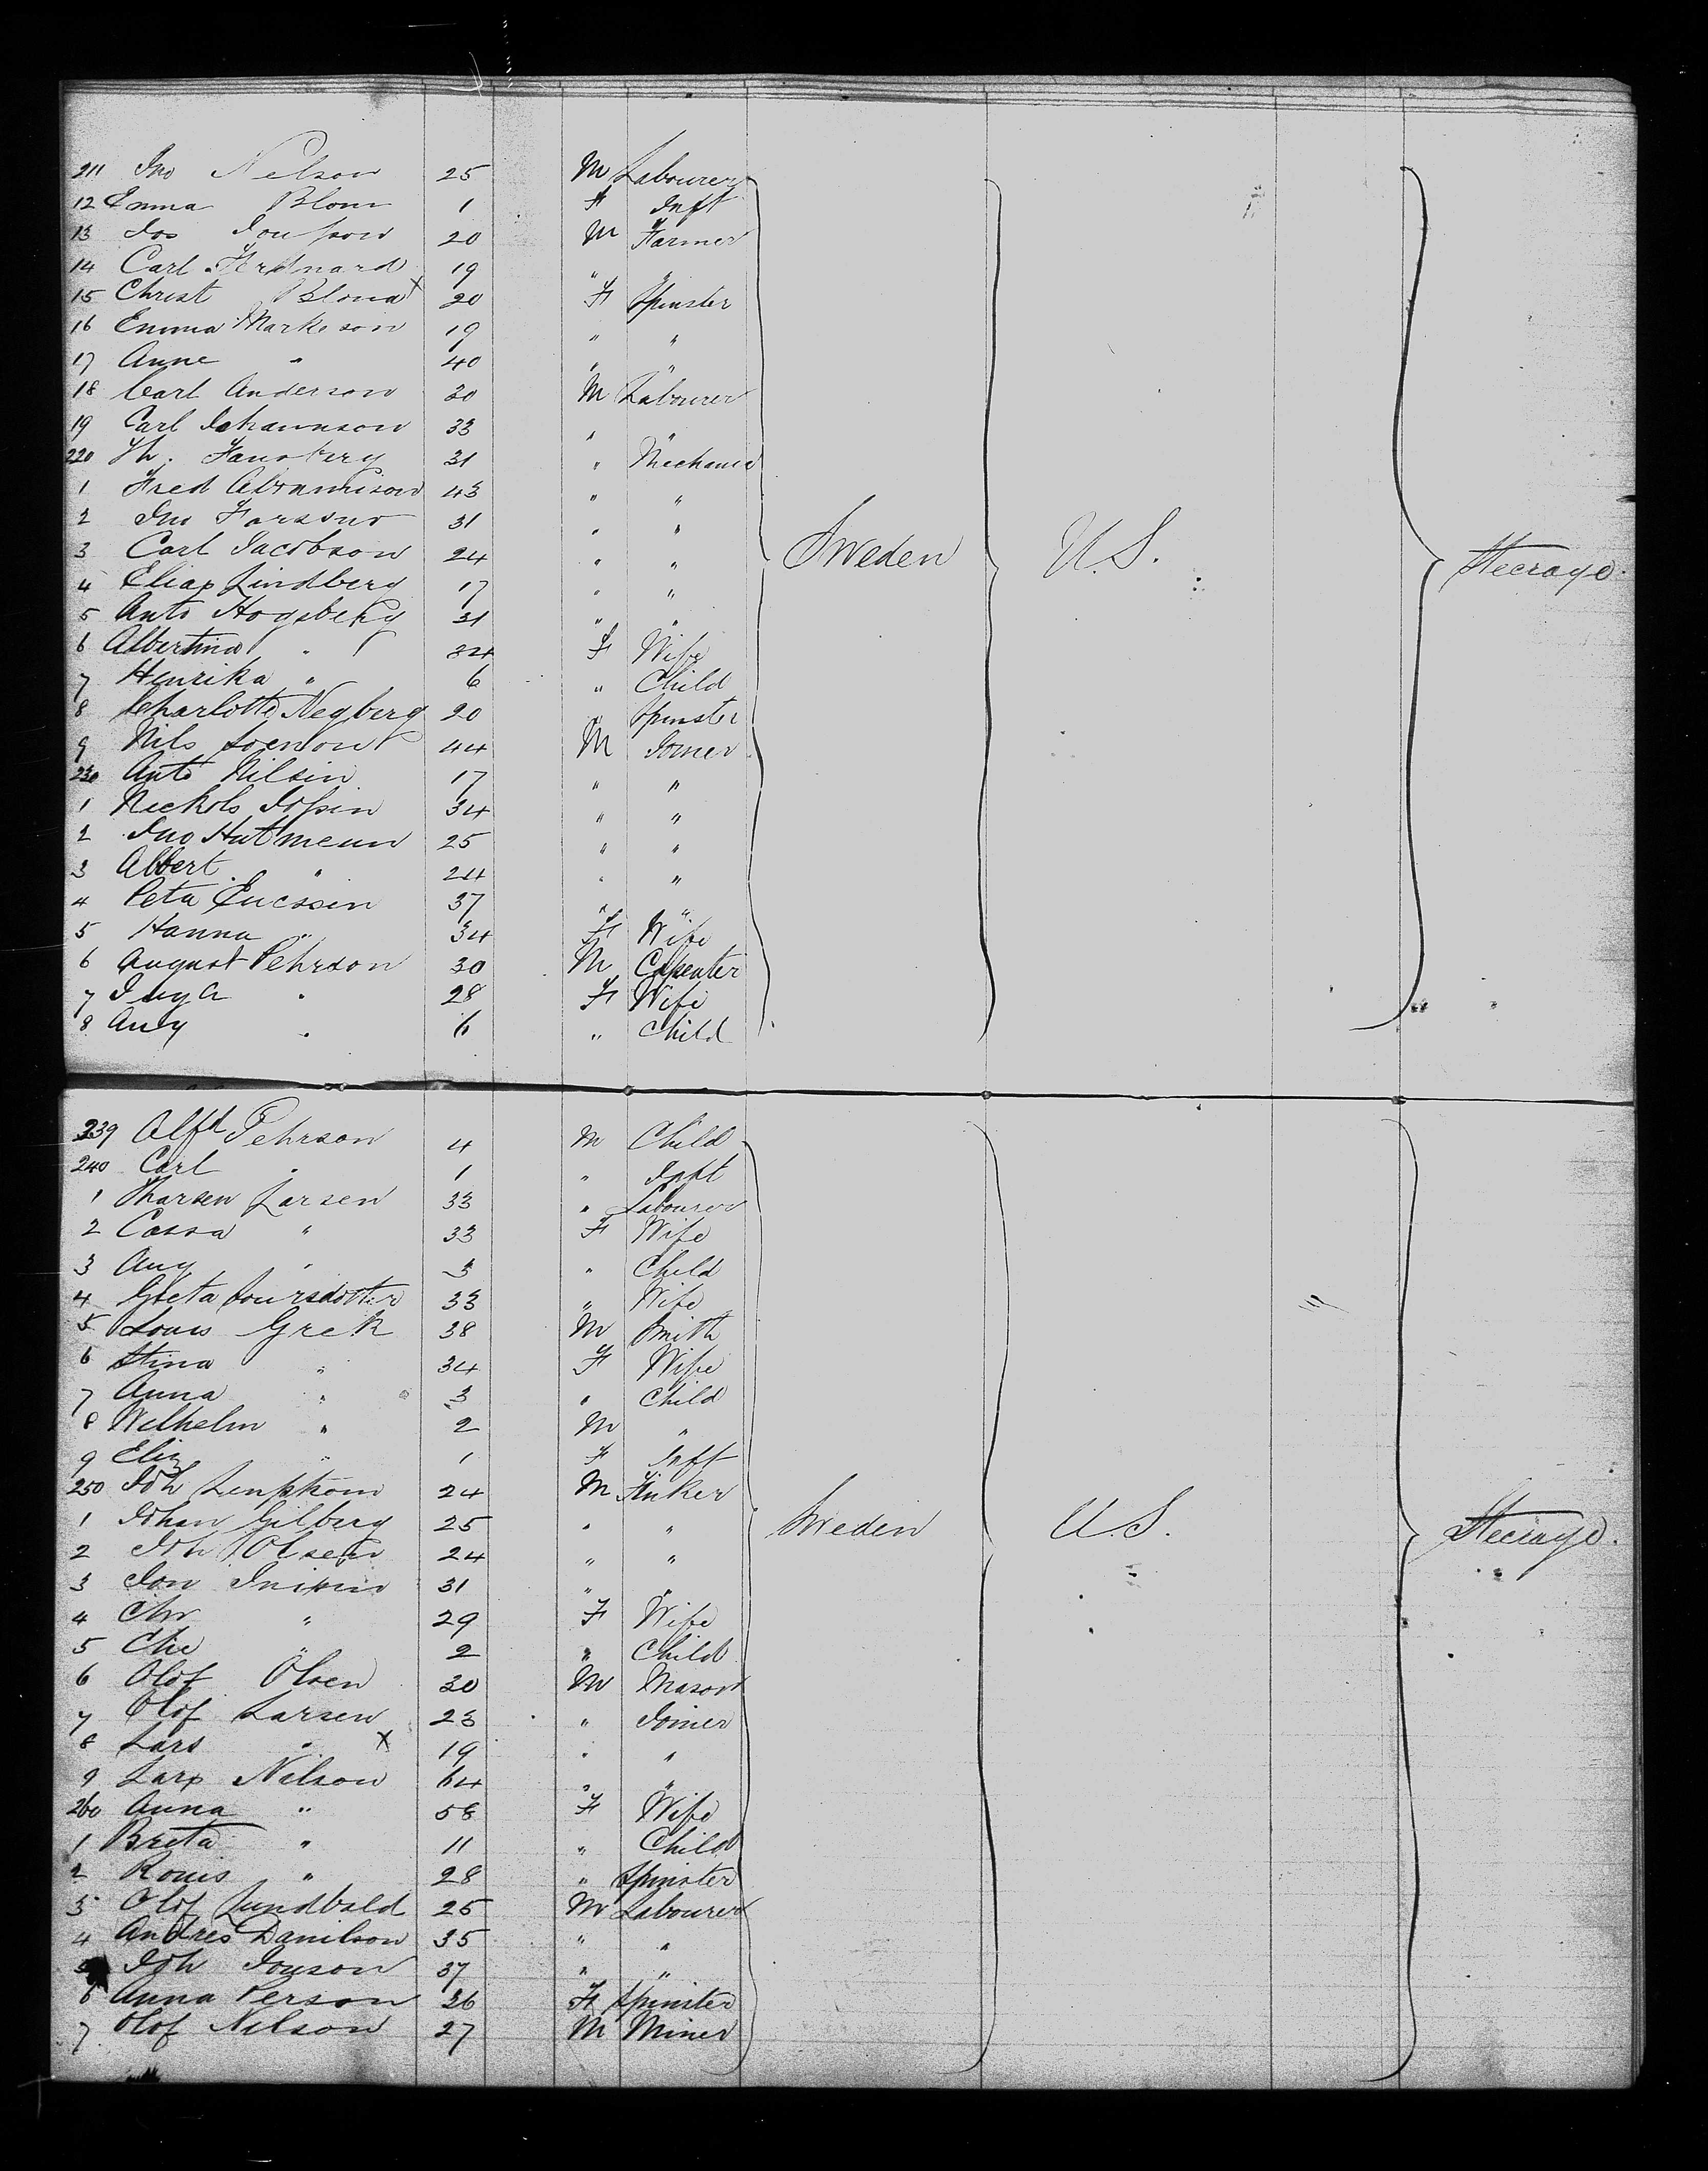 211 Jno Nelson 25 M Labourer
12 Emma Blom 1 F Inft
13 Jos 20 M Farmer
14 Carl 19 " "
15 Christ Blond x 20 F Spinster
16 Emma Markeson 19 " "
17 Anne " 40 " "
18 Carl Anderson 30 M Labourer
19 Carl Johannson 33 " "
220 31 " Mechanic
1 Fred 43 " "
2 Jno 31 " "
3 Carl Jacobson 24 " " Sweden U.S. Steerage
4 Elias Lindberg 17 " "
5 Anto Hogsberg 31 " "
6 Albertina " F Wife
7 Henrika " 6 " Child
8 Charlotte Negberg 20 " Spinster
9 Nils 44 M Joiner
230 Anto Nilsin 17 " "
1 Nickols 34 " "
2 Jno Hutmeun 25 " "
3 Albert " 24 " "
4 Peta Ericssen 37 " "
5 Hanna " 34 F Wife
6 August Pehrson 30 M Capenter
7 " 28 F Wife
8 Aug " 6 " Child
239 Alfd Pehrson 4 M Child
240 Carl " 1 " Inft
1 Larsen 33 " Labourer
2 Cassa " 33 F Wife
3 Aug " 3 " Child
4 Greta 33 " Wife
5 Louis Grek 38 M Smith
6 Stina " 34 F Wife
7 Anna " 3 " Child
8 Wilhelm " 2 M "
9 Eliz " 1 F Inft
250 Joh 24 M
1 Johan Gilberg 25 " " Sweden U.S. Steerage.
2 Joh Olsen 24 " "
3 Jon 31 " "
4 Chr " 29 F Wife
5 " 2 " Child
6 Olof Olsen 30 M Mason
7 Olof Larsen 23 " Joiner
8 Lars " x 19 " "
9 Lars Nilson 64 " "
260 Anna " 58 F Wife
1 Breta " 11 " Child
2 Rouis " 28 " Spinster
3 Olof Lundbald 25 M Labourer
4 Andres Danilson 35 " "
5 Joh Jonson 37 " "
6 Anna Person 26 F Spinster
7 Olof Nilson 27 M Miner